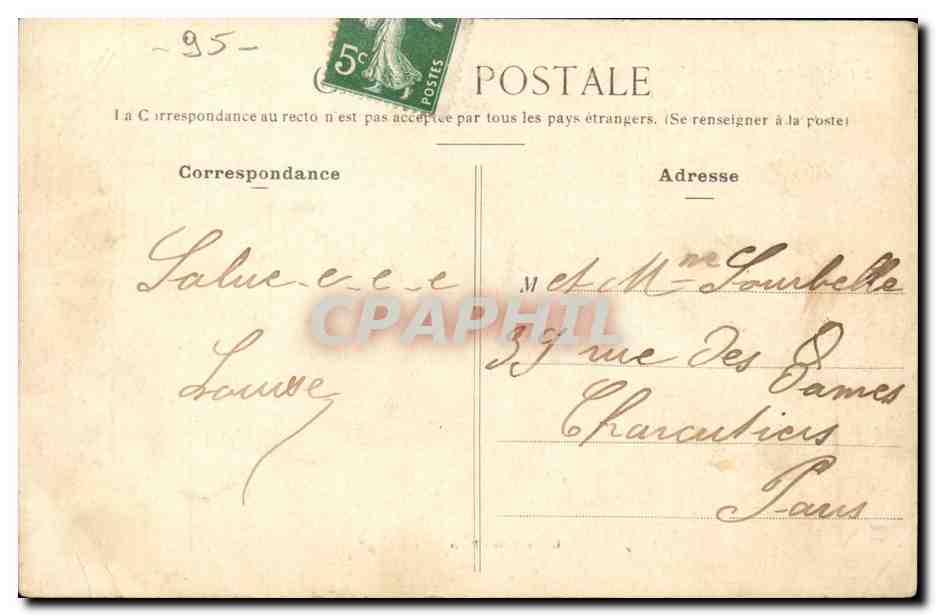 - 95 -
5c
POSTES
C POSTALE
La Correspondance au recto n'est pas acceptée par tous les pays étrangers. (Se renseigner à la poste)
Correspondance
Salue-e-e-e
Louise
Adresse
M et Mme Sourbelle
39 rue des Dames
Charcutiers
Paris
CPAPHIL